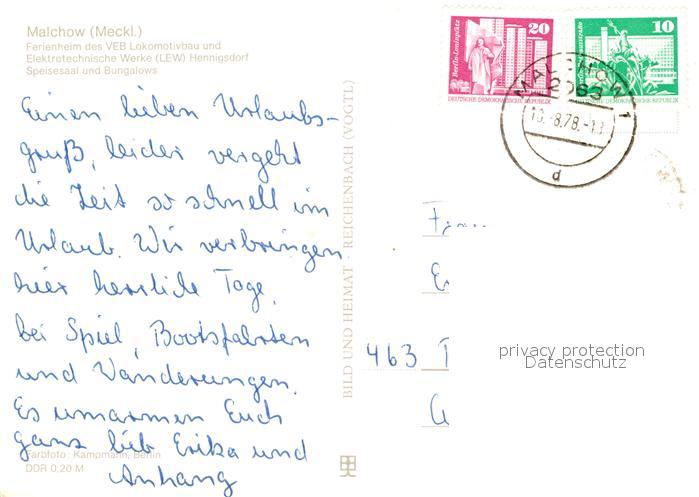 Malchow (Meckl.)
Ferienheim des VEB Lokomotivbau und
Elektrotechnische Werke (LEW) Hennigsdorf
Speisesaal und Bungalows
Einen lieben Urlaubs-
gruß, leider vergeht
die Zeit so schnell im
Urlaub. Wir verbringen
hier herrliche Tage,
bei Spiel, Bootsfahrten
und Wanderungen.
Es umarmen Euch
ganz lieb Erika und
Anhang
Farbfoto: Kampmann, Berlin
DDR 0,20 M
BILD UND HEIMAT · REICHENBACH (VOGTL)
Berlin-Leninplatz
20
DEUTSCHE DEMOKRATISCHE REPUBLIK
10
DEUTSCHE DEMOKRATISCHE REPUBLIK
MALCHOW 1
2063
-8.78.-
d
463
privacy protection
Datenschutz